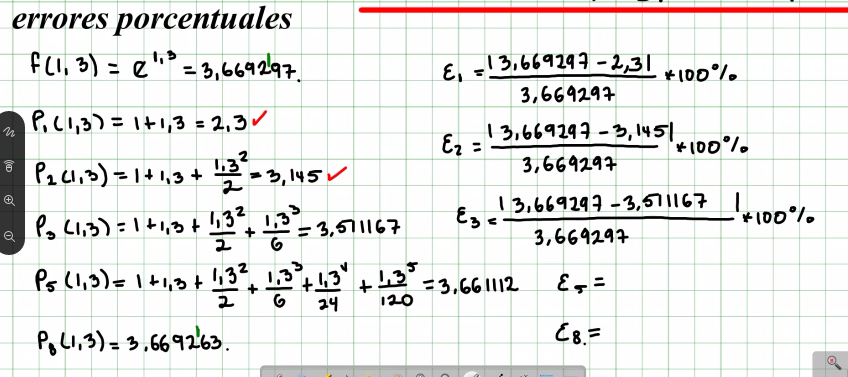 errores porcentuales
f(1,3) = e^1,3 = 3,669297.
P₁(1,3) = 1+1,3 = 2,3 ✓
P₂(1,3) = 1+1,3 + 1,3²/2 = 3,145 ✓
P₃(1,3) = 1+1,3 + 1,3²/2 + 1,3³/6 = 3,511167
P₅(1,3) = 1+1,3 + 1,3²/2 + 1,3³/6 + 1,3⁴/24 + 1,3⁵/120 = 3,661112
P₈(1,3) = 3,669263.
ε₁ = |3,669297 - 2,3|/3,669297 *100%
ε₂ = |3,669297 - 3,145|/3,669297 *100%
ε₃ = |3,669297 - 3,511167|/3,669297 *100%
ε₅ =
ε₈. =